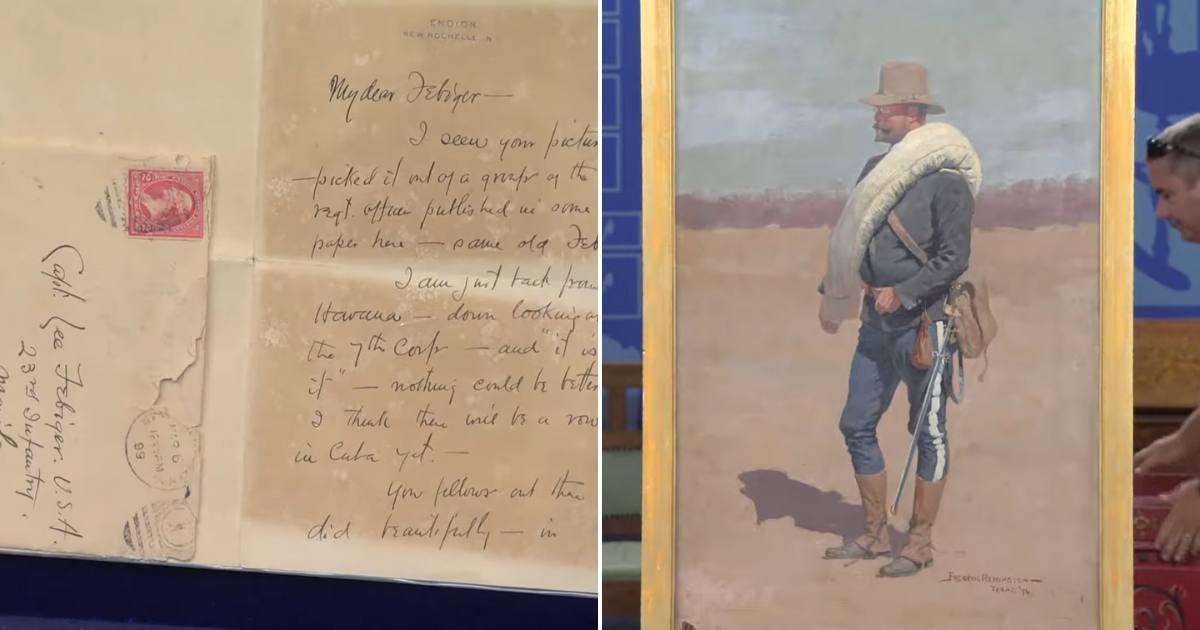 ENDION
NEW ROCHELLE N
My dear Febiger—
I seen your pictur
—picked it out of a group of the
regt. officer published in some
paper here — same old Feb
I am just back from
Havana — down looking a
the 7th Corps — and "it is
it" — nothing could be better
I think there will be a row
in Cuba yet. —
You fellows out there
did beautifully — in
Capt. Lee Febiger. U.S.A.
23rd Infantry.
Manila
99
FREDERIC REMINGTON—
TEXAS